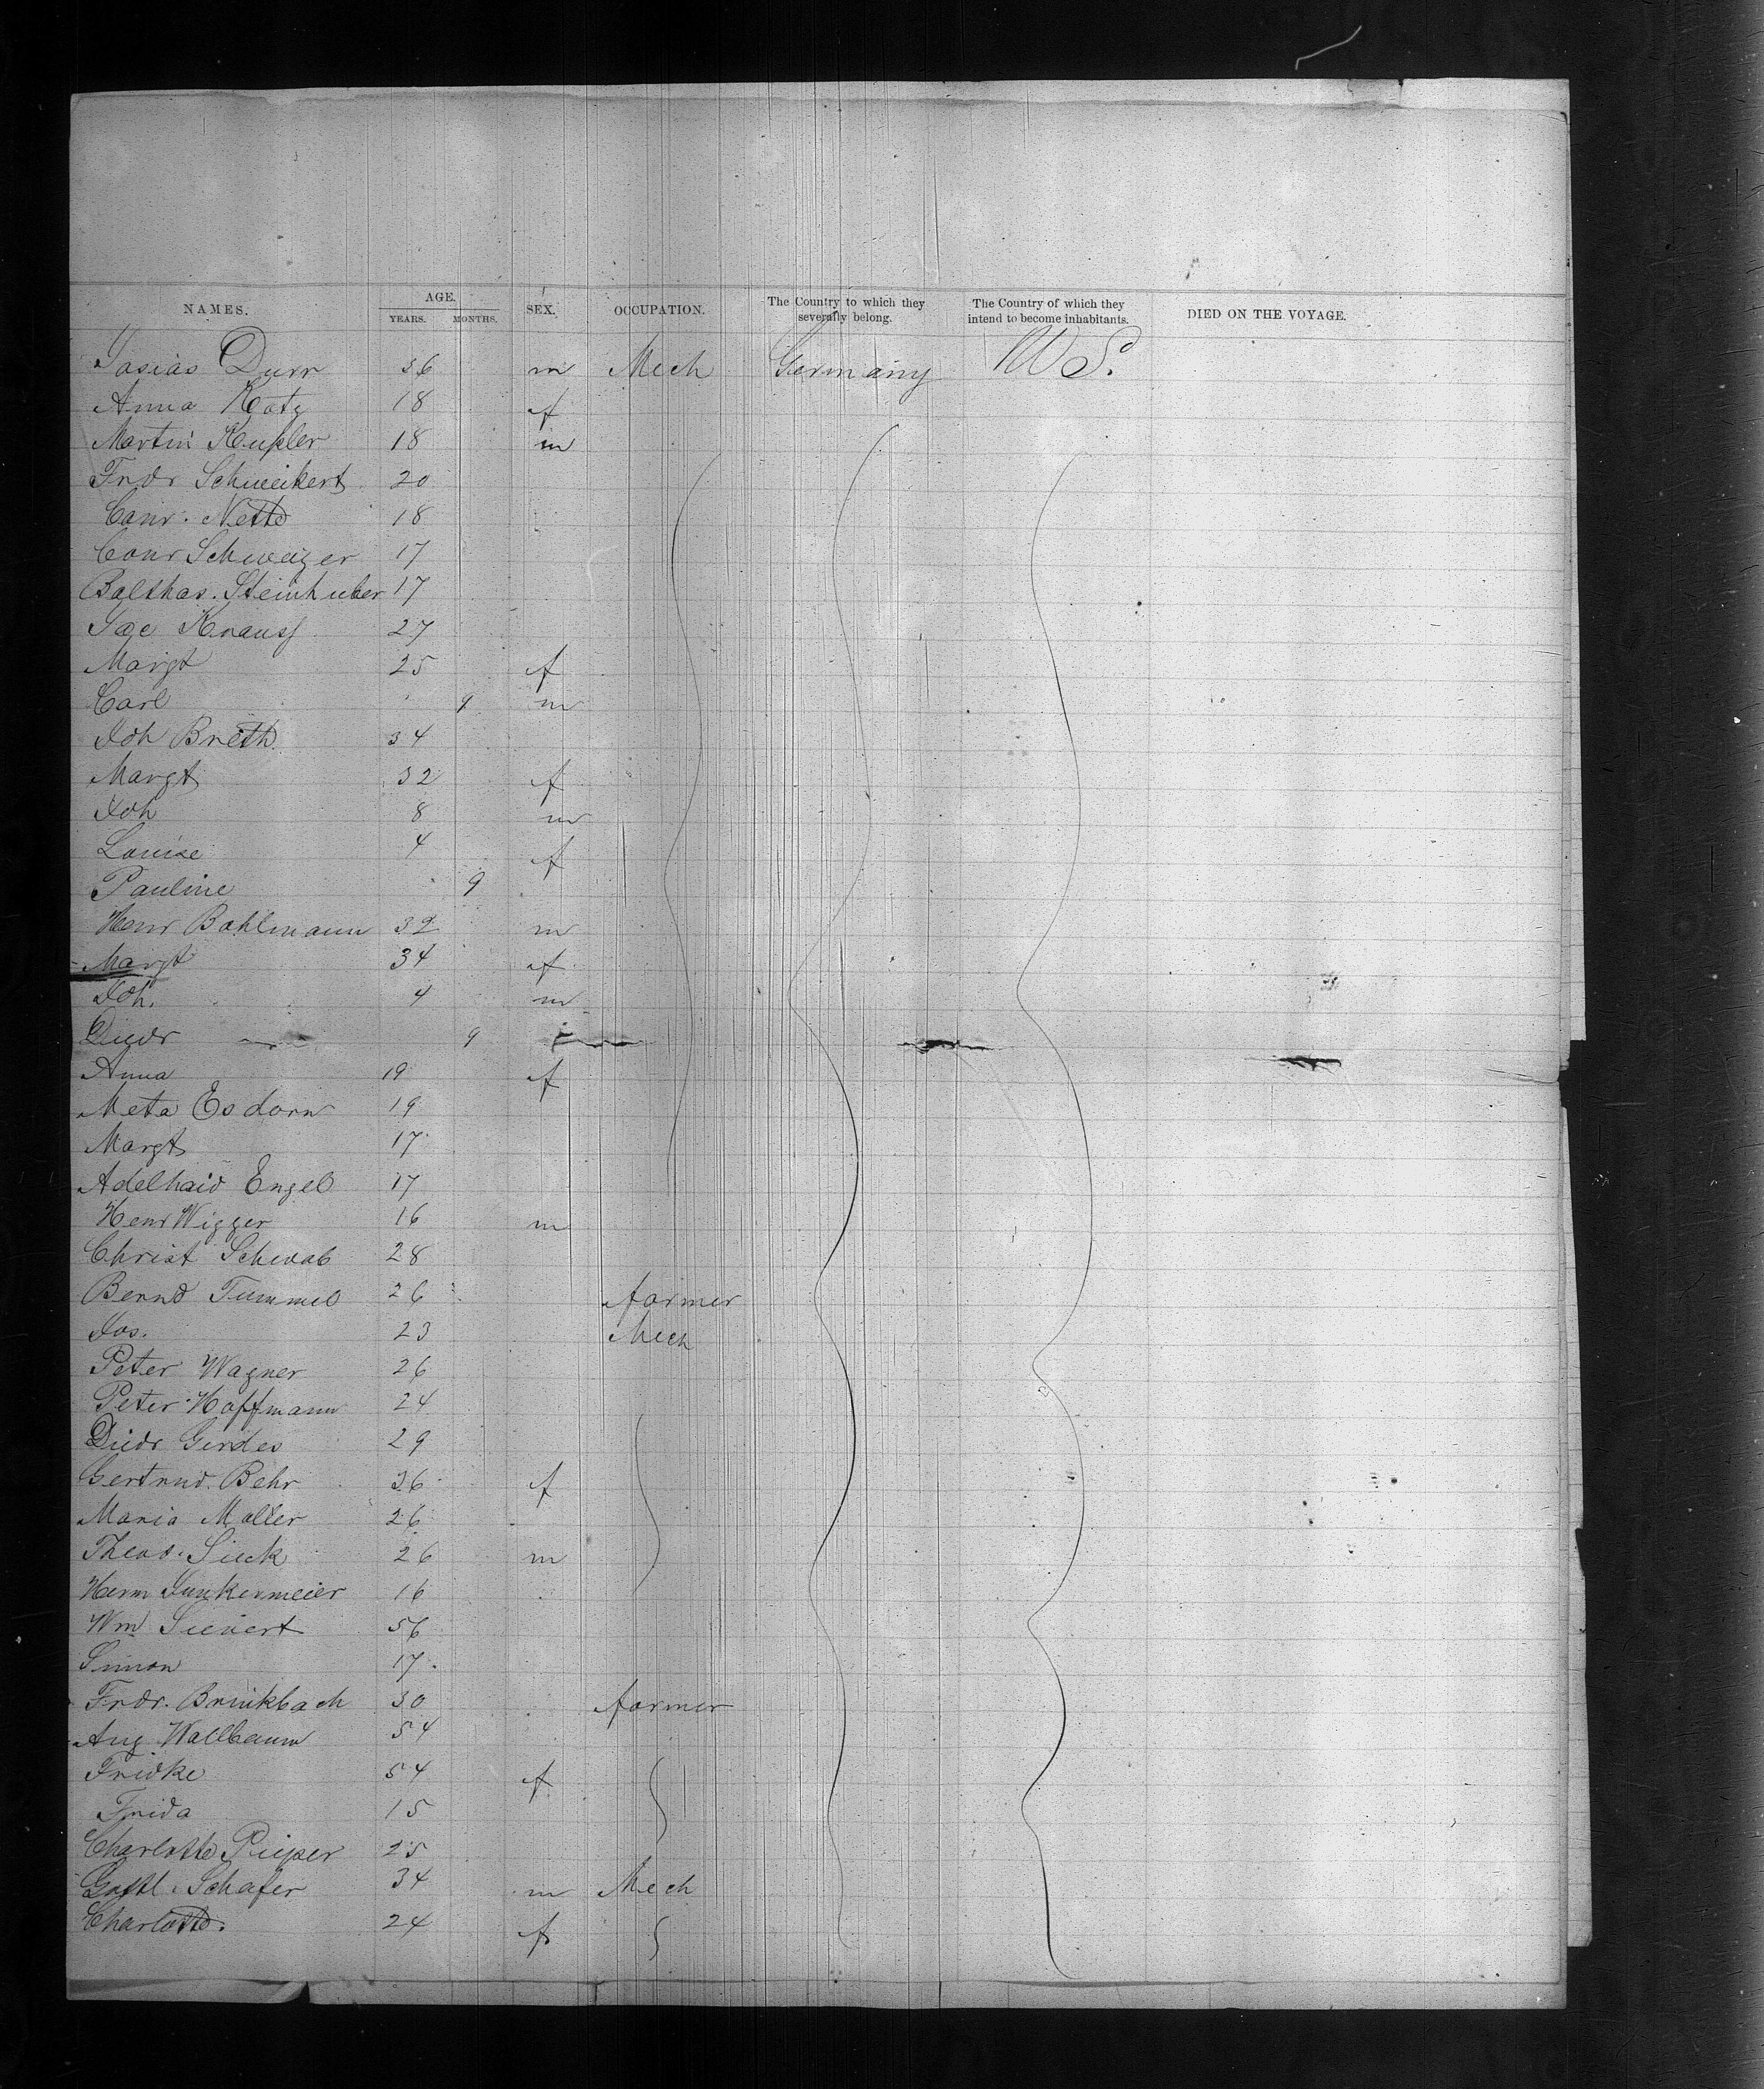 NAMES. AGE. YEARS. MONTHS. SEX. OCCUPATION. The Country to which they severally belong. The Country of which they intend to become inhabitants. DIED ON THE VOYAGE.
Josias Durr 36 m Mech Germany U S.
Anna Katz 18 f
Martin Kupler 18 m
Fridr Schweikert 20
Conr. Nette 18
Conr Schweizer 17
Balthas. Steinhuber 17
Jac Knauss 27
Margt 25 f
Carl 9 m
Joh Breth 34
Margt 32 f
Joh 8 m
Louise 4 f
Pauline 9
Henr Bohlmann 32 m
Margt 34 f
Joh. 4 m
Diedr 9
Anna 19 f
Meta Esdorn 19
Margt 17
Adelhaid Engel 17
Henr Wigger 16 m
Christ Schwab 28
Bernd Tummel 26 farmer
Jos. 23 Mech
Peter Wagner 26
Peter Hoffmann 24
Diedr Gerdes 29
Gertrud. Behr 26 f
Maria Moller 26
Theod. Sieck 26 m
Herm Junkermeier 16
Wm Sievert 56
Simon 17
Frdr. Brinkbach 30 farmer
Aug Wallbaum 54
Fridke 54 f
Frida 15
Charlotte Pieper 25
Gottl. Schafer 34 m Mech
Charlotte. 24 f